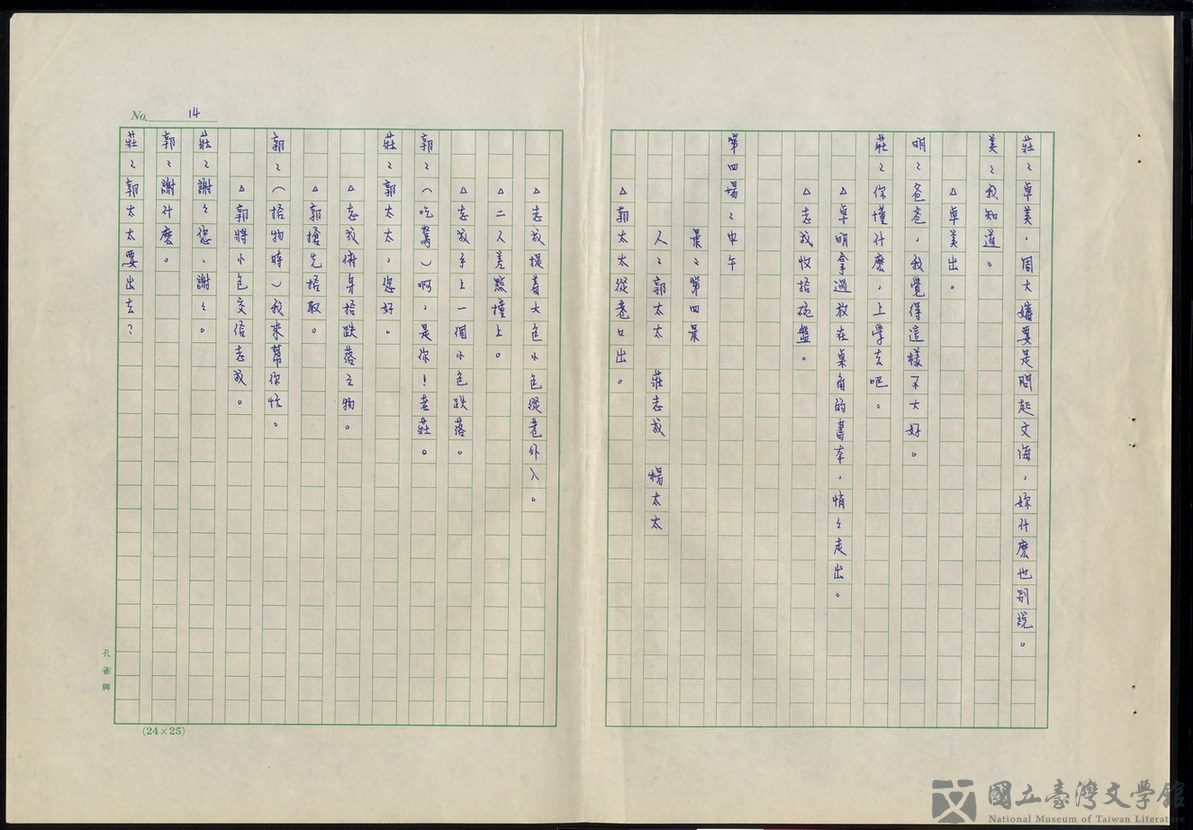 莊：卓美，周大嬸要是問起文海，妳什麼也別說。
美：我知道。
△卓美出。
明：爸爸，我覺得這樣不大好。
莊：你懂什麼，上學去吧。
△卓明拿過放在桌角的書本，悄々走出。
△志成收拾碗盤。
第四場：中午
景：第四景
人：郭太太 莊志成 楊太太
△郭太太從巷口出。
△志成提着大包小包從巷外入。
△二人差點撞上。
△志成手上一個小包跌落。
郭：（吃驚）啊，是你！老莊。
莊：郭太太，您好。
△志成俯身拾跌落之物。
△郭搶先拾取。
郭：（拾物時）我來幫你忙。
△郭將小包交給志成。
莊：謝々您，謝々。
郭：謝什麼。
莊：郭太太要出去？
No. 14
孔雀牌
(24×25)
國立臺灣文學館
National Museum of Taiwan Literature